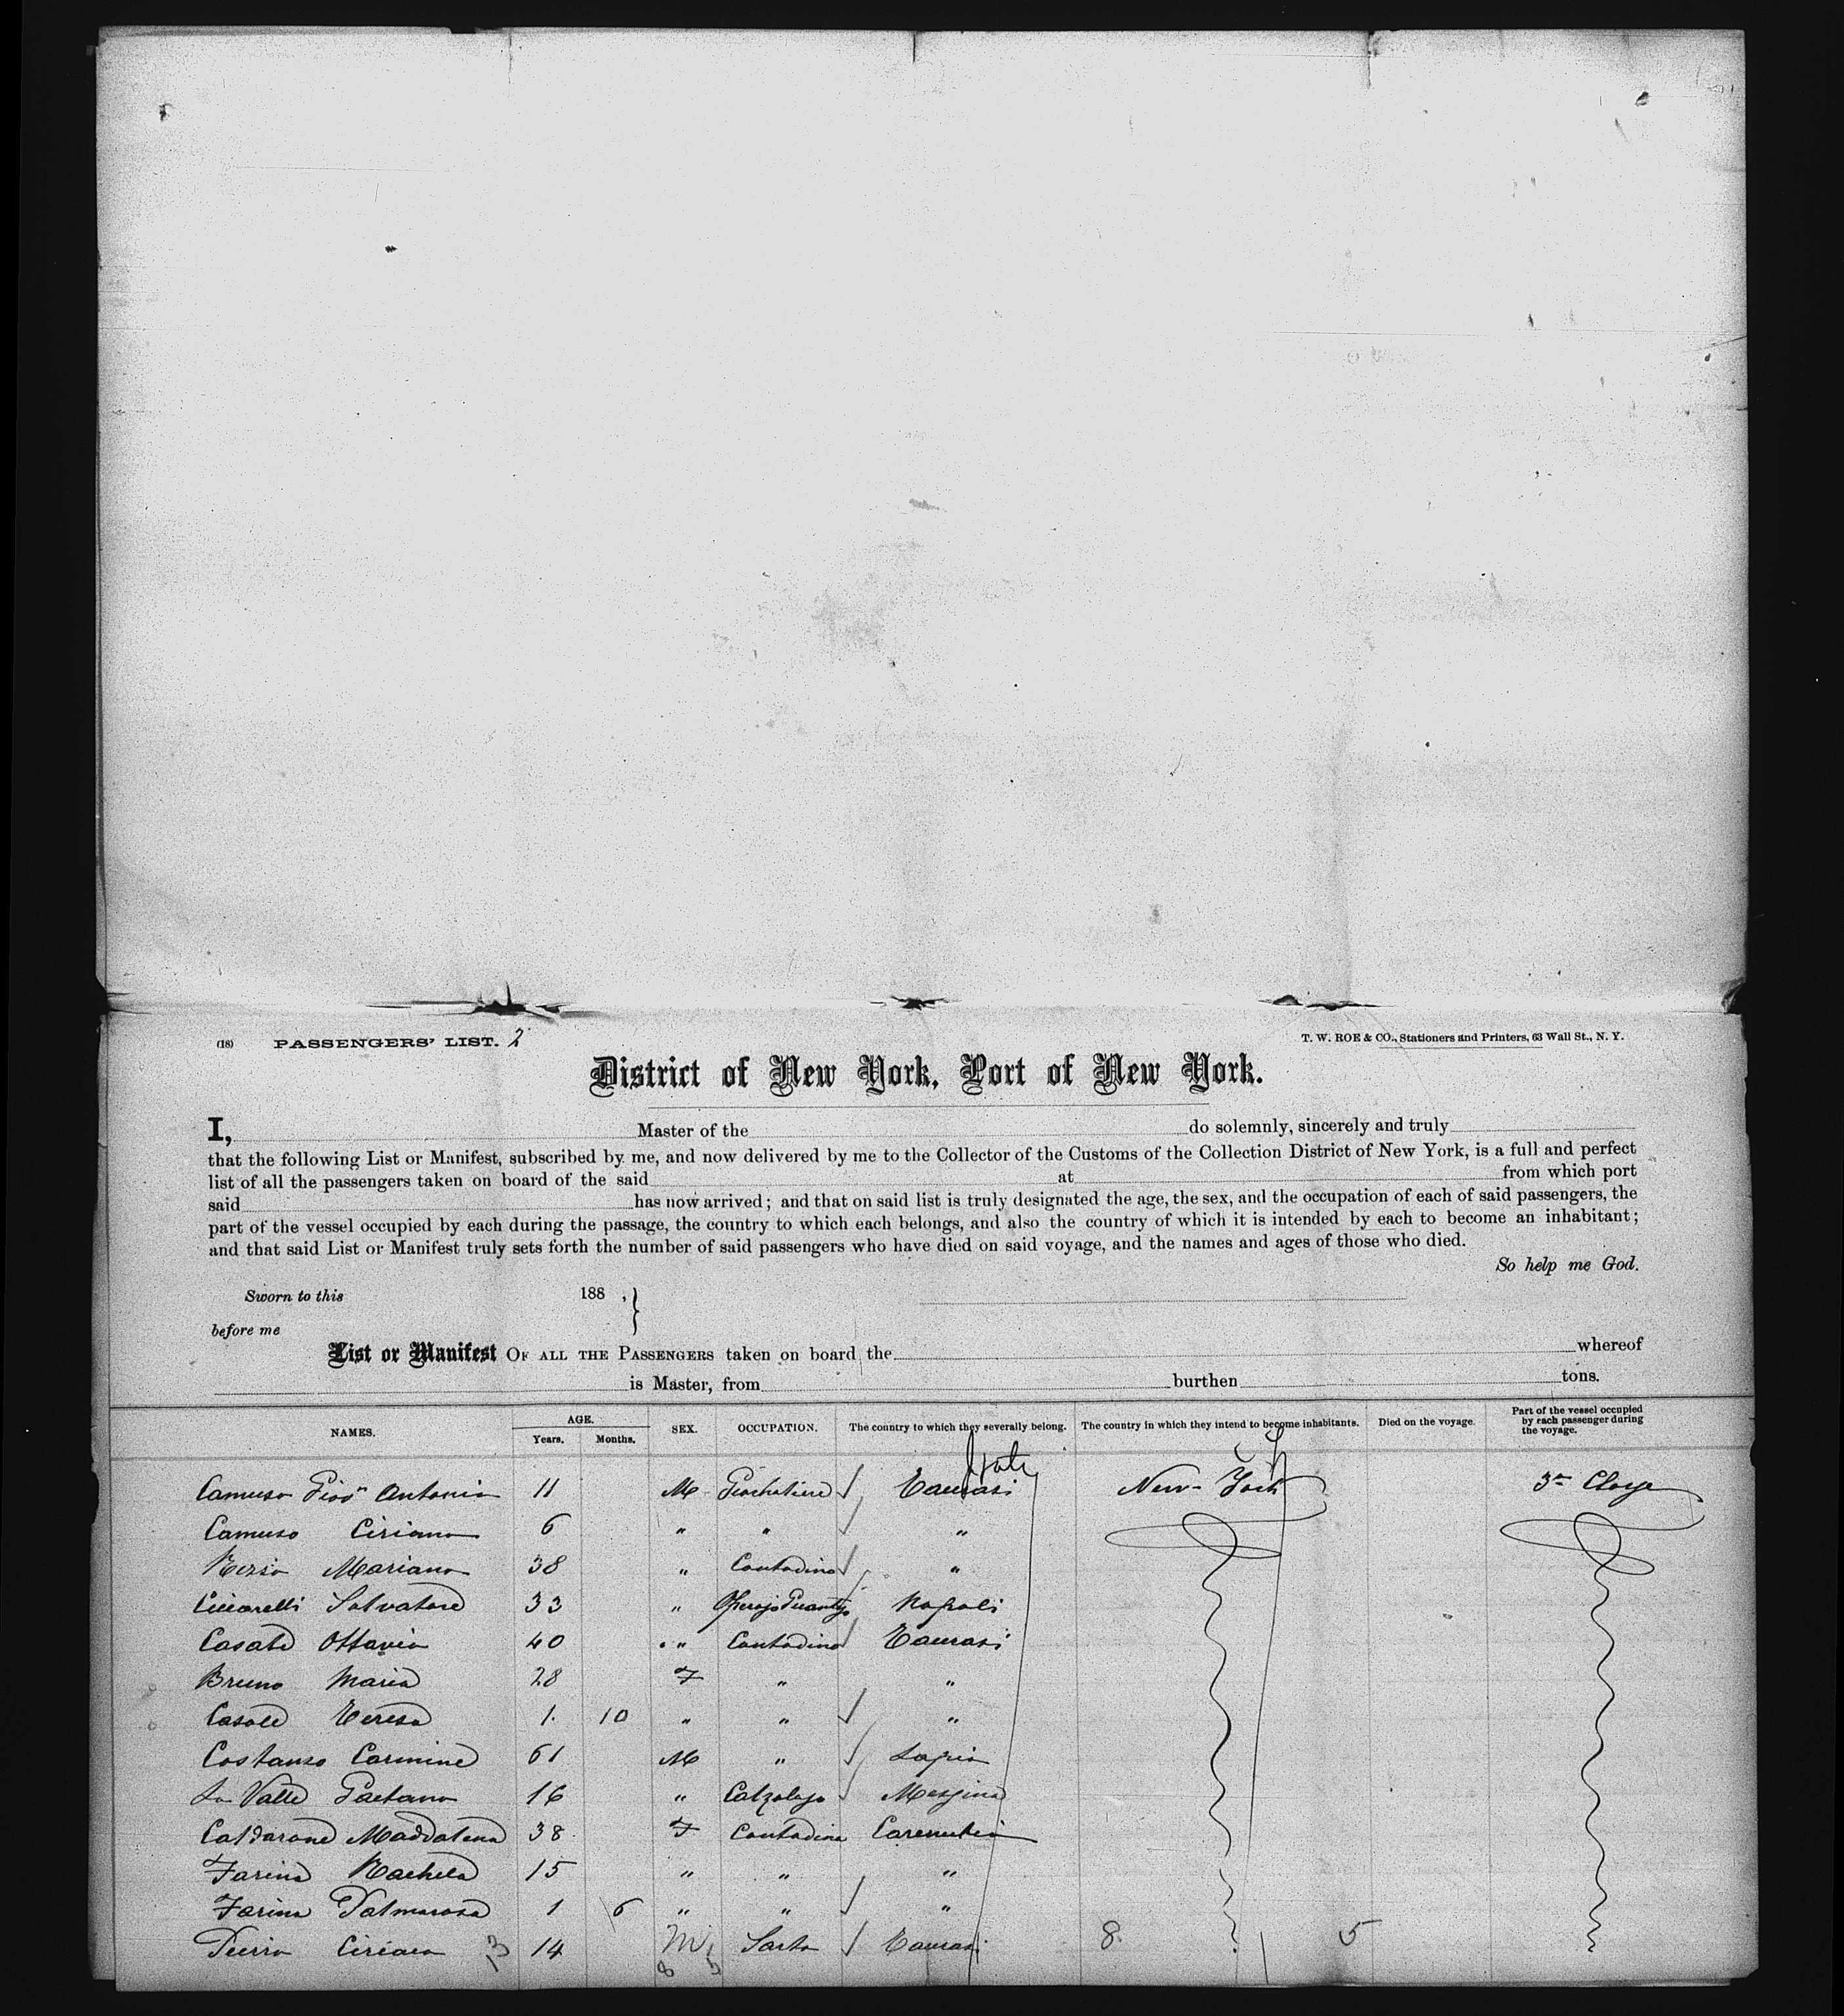 (18) PASSENGERS' LIST. 2 T. W. ROE & CO., Stationers and Printers, 63 Wall St., N. Y.
District of New York, Port of New York.
I, Master of the do solemnly, sincerely and truly
that the following List or Manifest, subscribed by me, and now delivered by me to the Collector of the Customs of the Collection District of New York, is a full and perfect
list of all the passengers taken on board of the said at from which port
said has now arrived; and that on said list is truly designated the age, the sex, and the occupation of each of said passengers, the
part of the vessel occupied by each during the passage, the country to which each belongs, and also the country of which it is intended by each to become an inhabitant;
and that said List or Manifest truly sets forth the number of said passengers who have died on said voyage, and the names and ages of those who died.
So help me God.
Sworn to this 188 , }
before me
List or Manifest OF ALL THE PASSENGERS taken on board the whereof
is Master, from burthen tons.
NAMES. AGE. Years. Months. SEX. OCCUPATION. The country to which they severally belong. The country in which they intend to become inhabitants. Died on the voyage. Part of the vessel occupied by each passenger during the voyage.
Italy
Camuso Antonio 11 M Taurasi New-York 3a
Camuso Ciriaco 6 " " "
Mariano 38 " Contadino "
Ciccarelli Salvatore 33 " Napoli
Casale Ottavio 40 " Contadino Taurasi
Bruno Maria 28 F " "
Casale Teresa 1 10 " " "
Costanzo Carmine 61 M " Lapio
La Valle Gaetano 16 " Calzolajo Messina
Caldarone Maddalena 38 F Contadina
Farina Rachela 15 " " "
Farina Palmarosa 1 6 " " "
Ciriaco 13 14 M Sarto Taurasi 8 5
8 5